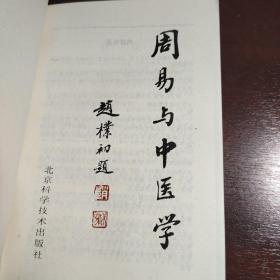 周易与中医学
趙樸初题
北京科学技术出版社